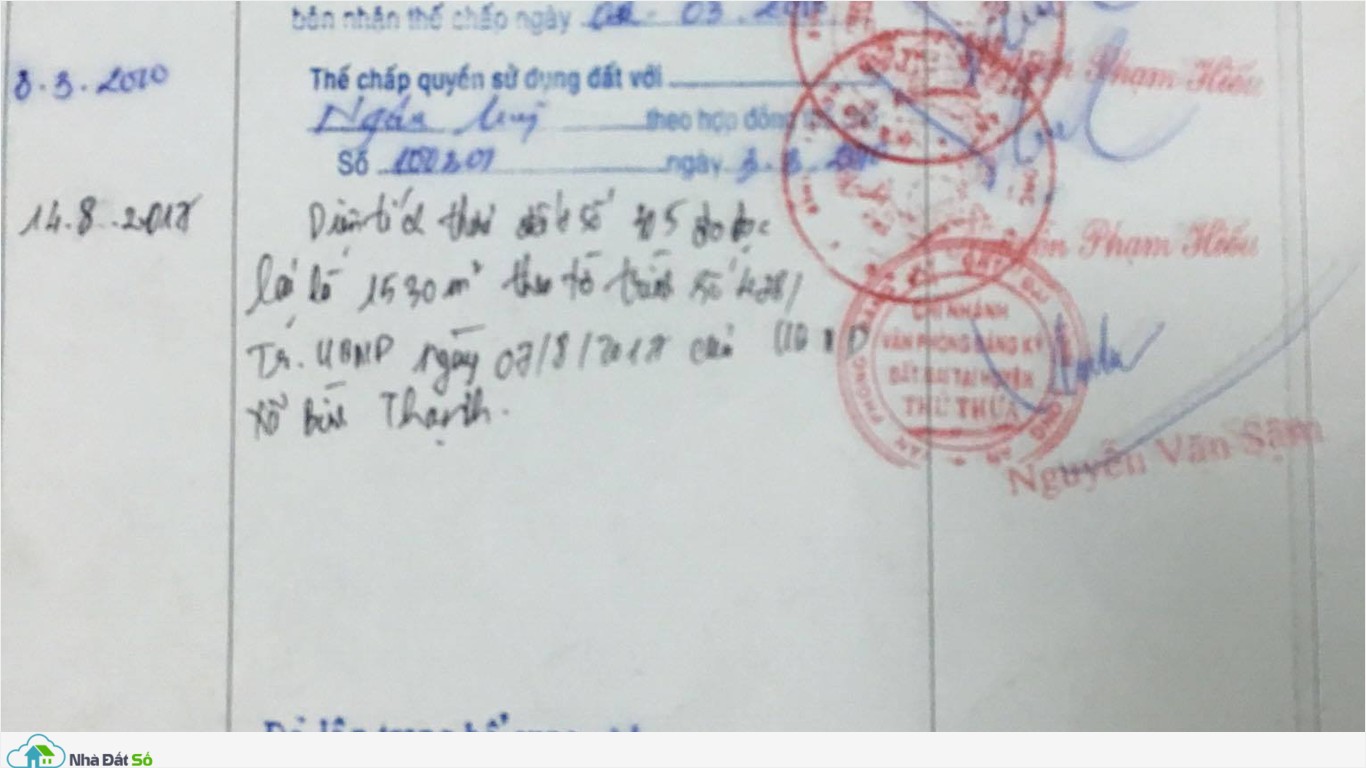 bên nhận thế chấp ngày 02 - 03 . 2010
Phạm Hiếu
3.3.2010 Thế chấp quyền sử dụng đất với
Ngân theo hợp đồng
Số ngày 3.3.2010
14.8.2018 Diện tích thửa đất số đo đạc
Phạm Hiếu
lại là 1530 m² theo tờ trình số 428/
Tr. UBND ngày 07/8/2018 của UBND
xã Bình Thạnh.
CHI NHÁNH
VĂN PHÒNG ĐĂNG KÝ
ĐẤT ĐAI TẠI HUYỆN
THỦ THỪA
Nguyễn Văn Sậm
Nhà Đất Số